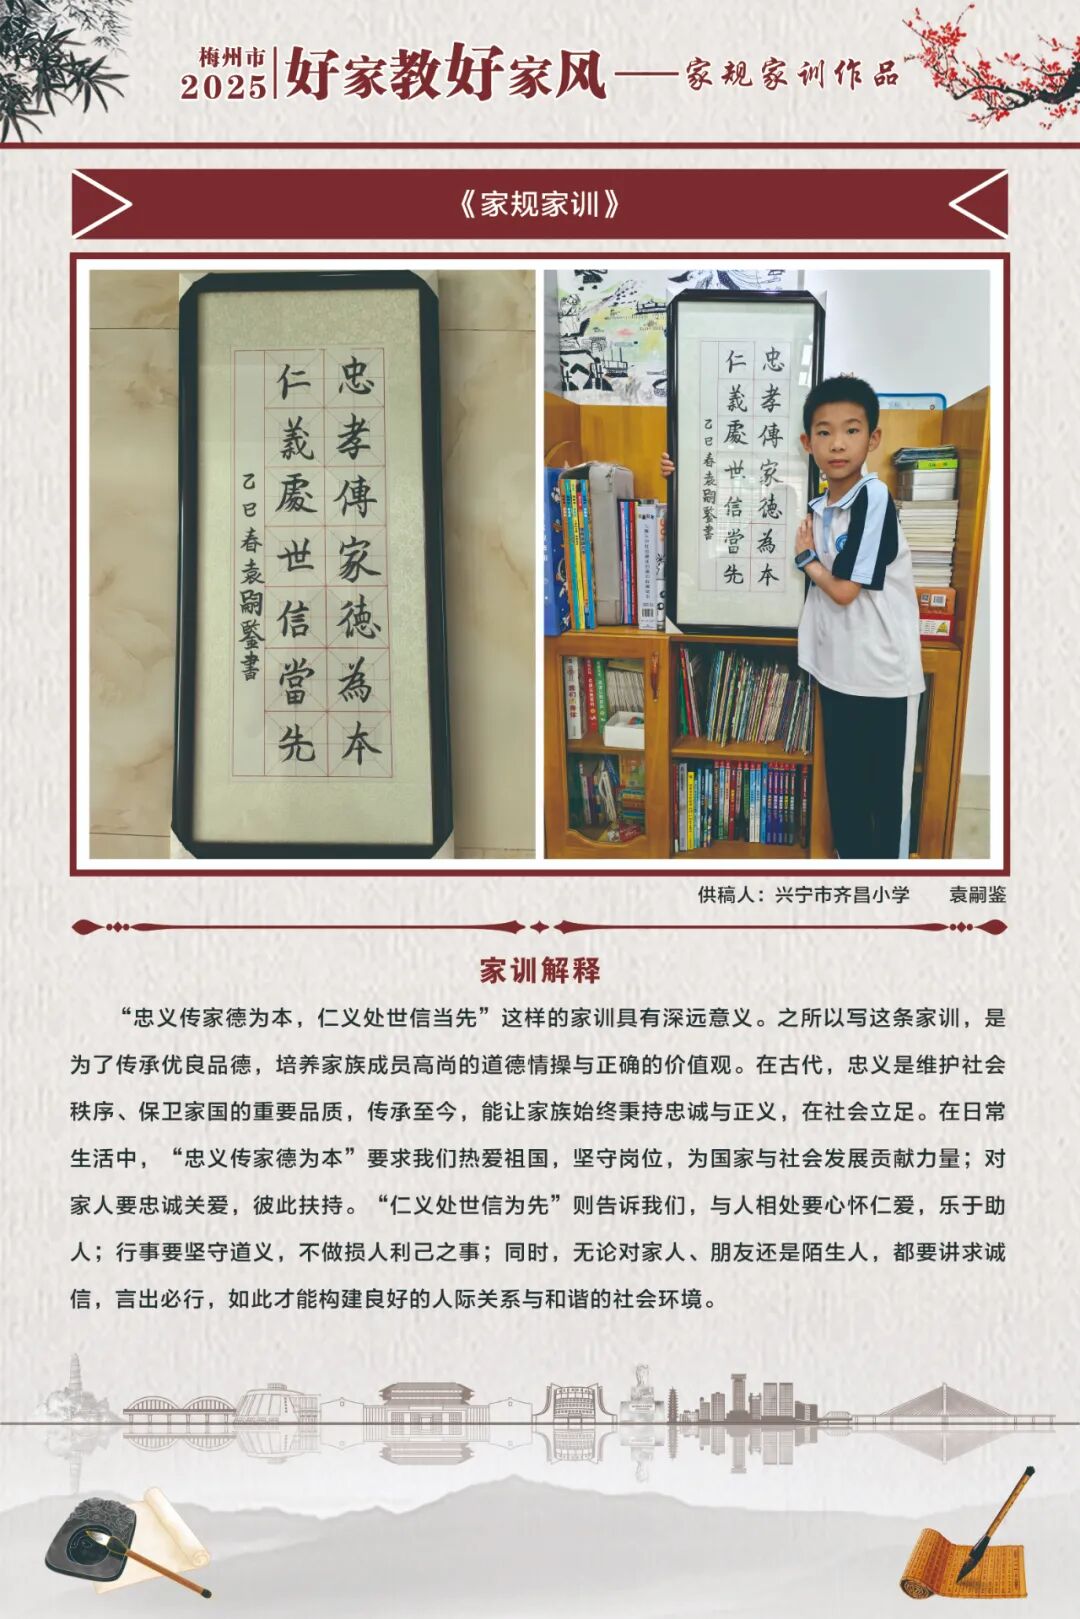 梅州市
2025
好家教好家风——家规家训作品
《家规家训》
忠孝傳家德為本
仁義處世信當先
乙巳春袁嗣鑒書
忠孝傳家德為本
仁義處世信當先
乙巳春袁嗣鑒書
供稿人：兴宁市齐昌小学 袁嗣鉴
家训解释
“忠义传家德为本，仁义处世信当先”这样的家训具有深远意义。之所以写这条家训，是
为了传承优良品德，培养家族成员高尚的道德情操与正确的价值观。在古代，忠义是维护社会
秩序、保卫家国的重要品质，传承至今，能让家族始终秉持忠诚与正义，在社会立足。在日常
生活中，“忠义传家德为本”要求我们热爱祖国，坚守岗位，为国家与社会发展贡献力量；对
家人要忠诚关爱，彼此扶持。“仁义处世信为先”则告诉我们，与人相处要心怀仁爱，乐于助
人；行事要坚守道义，不做损人利己之事；同时，无论对家人、朋友还是陌生人，都要讲求诚
信，言出必行，如此才能构建良好的人际关系与和谐的社会环境。